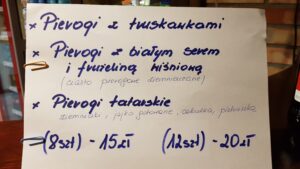 * Pierogi z truskawkami
* Pierogi z białym serem
i frużeliną wiśniową
(ciasto pierogowe ziemniaczane)
* Pierogi tatarskie
ziemniaki, jajko gotowane, cebulka, pietruszka
(8szt) - 15zł (12szt) - 20zł